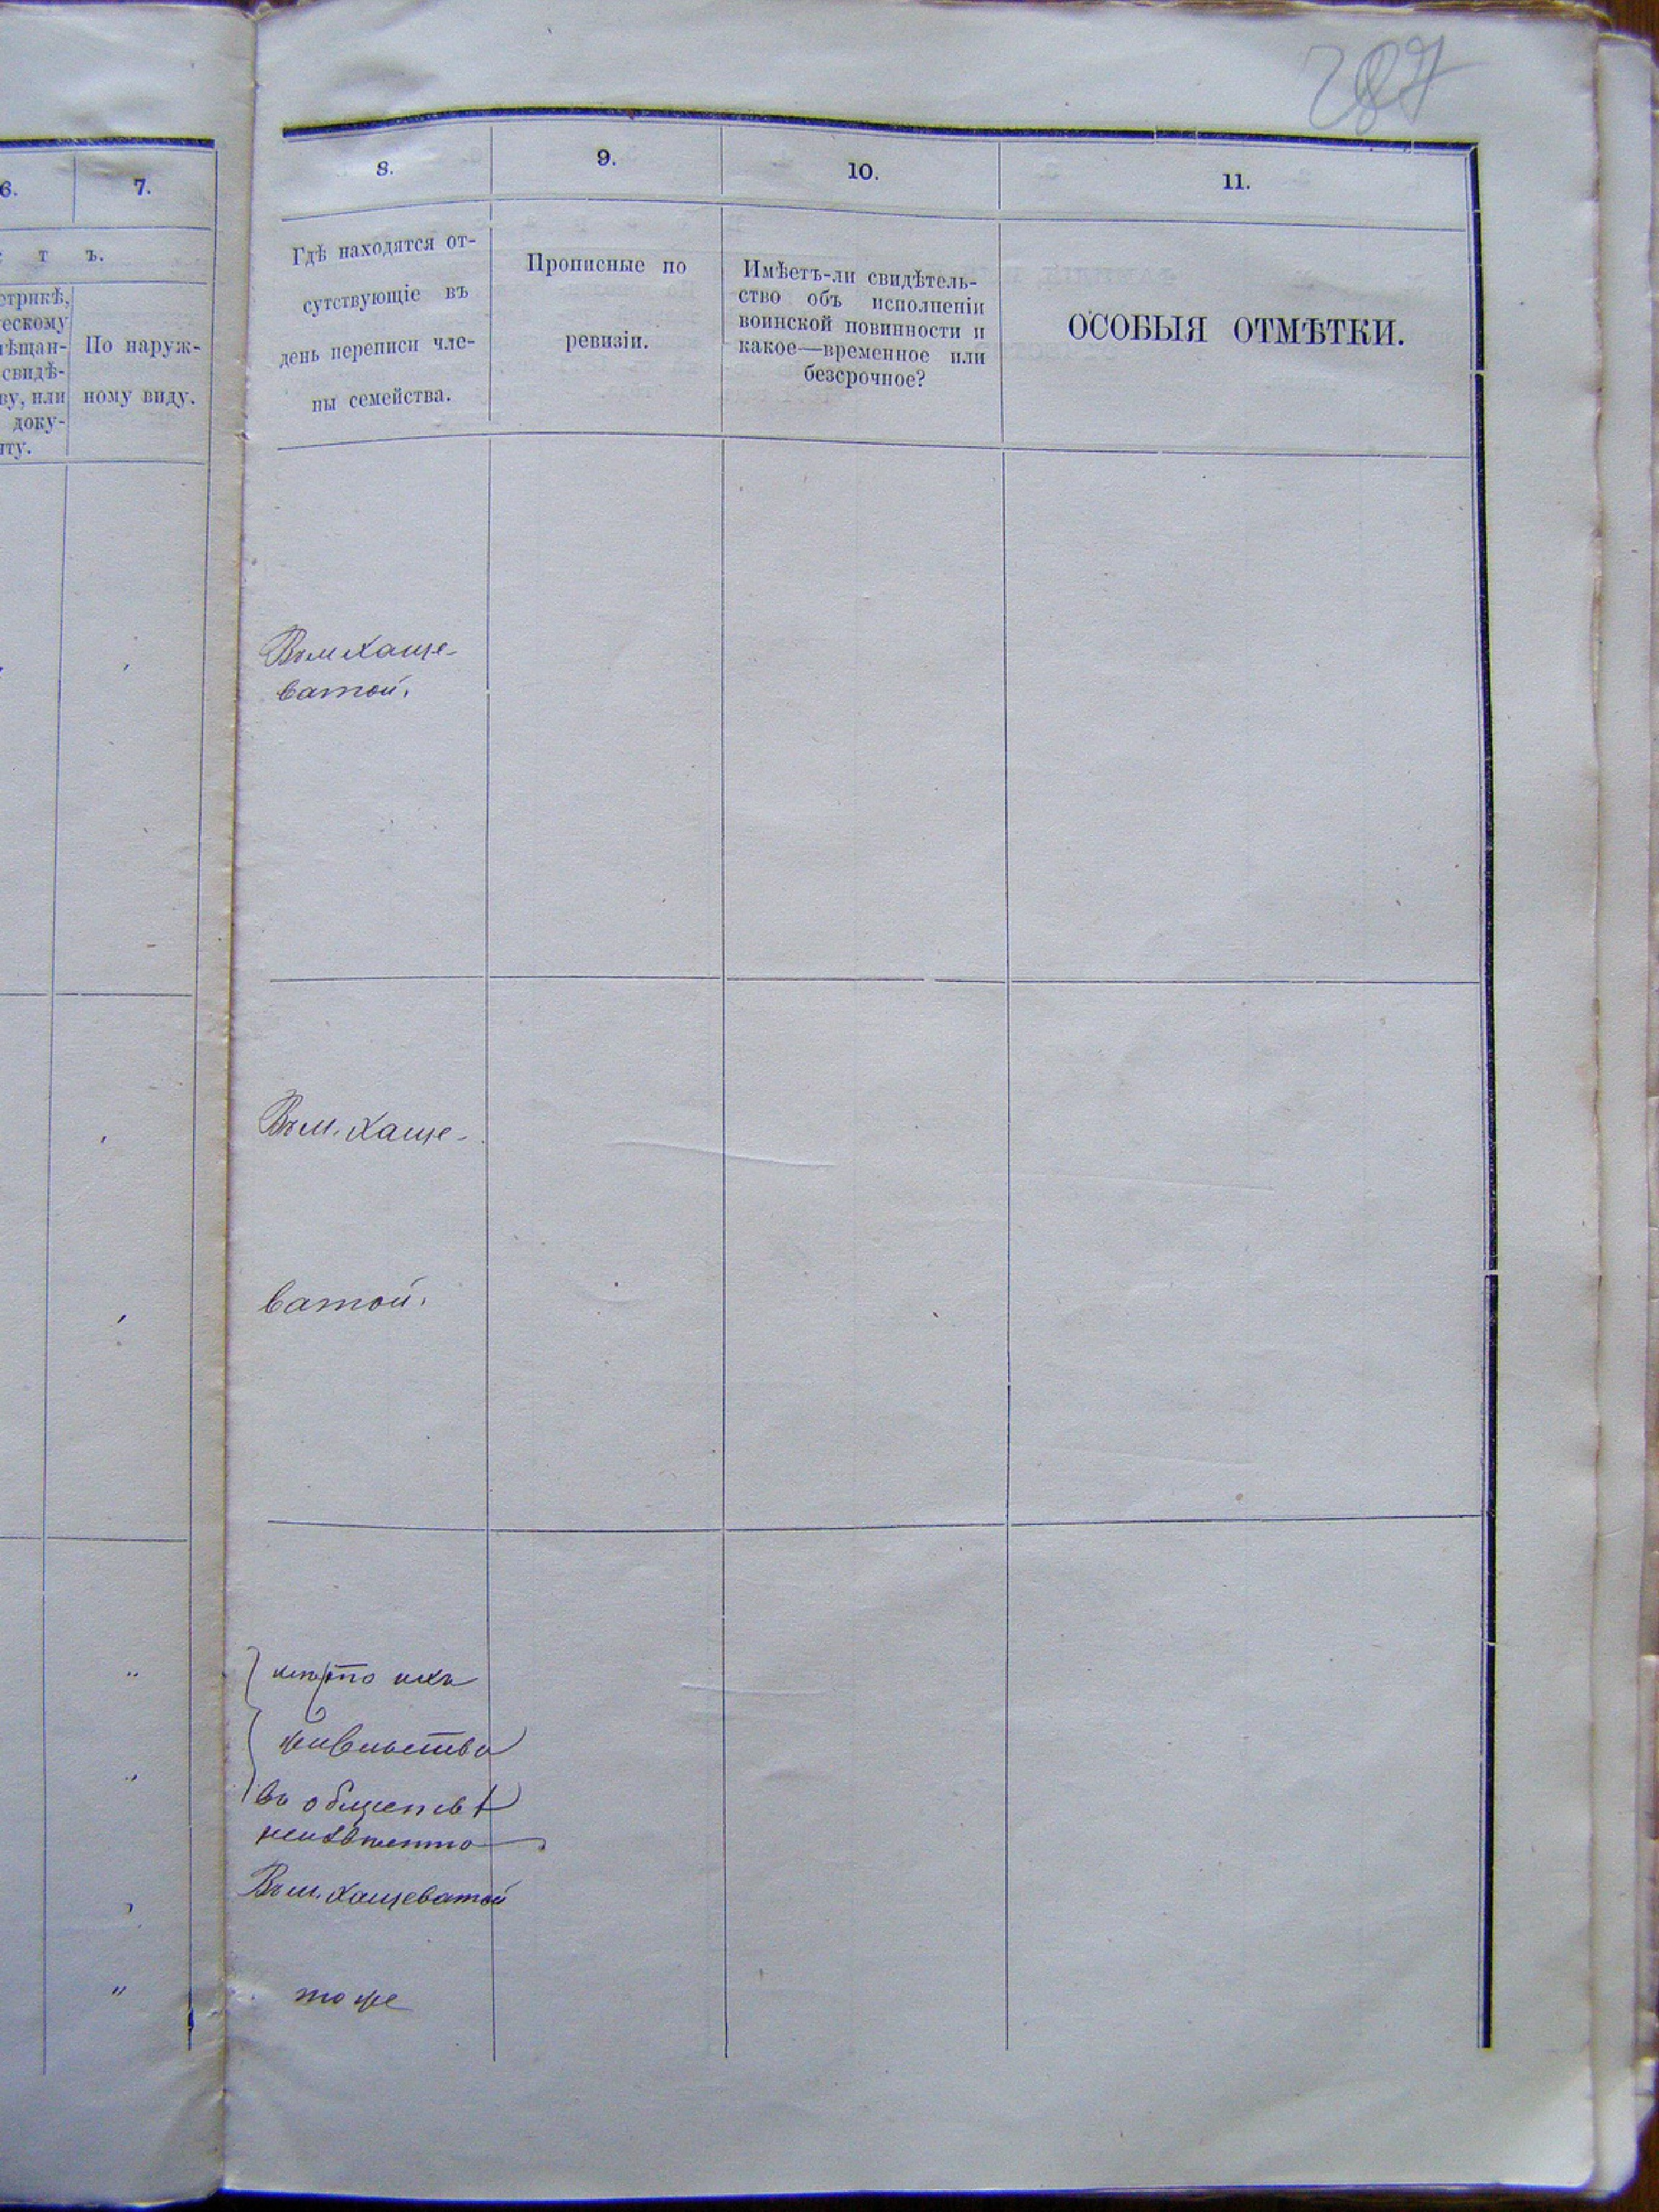 287
6.
7.
с т ъ.
етрикѣ,
ческому
мѣщан-
свидѣ-
ву, или
доку-
нту.
По наруж-
ному виду.
8.
9.
10.
11.
Гдѣ находятся от-
сутствующіе въ
день переписи чле-
ны семейства.
Прописные по
ревизіи.
Имѣетъ-ли свидѣтель-
ство объ исполненіи
воинской повинности и
какое—временное или
безсрочное?
ОСОБЫЯ ОТМѢТКИ.
Въ м Хаще-
ватой.
Въ м. Хаще-
ватой.
мѣсто ихъ
жительства
въ обществѣ
неизвѣстно
Въ м. Хащеватой
тоже